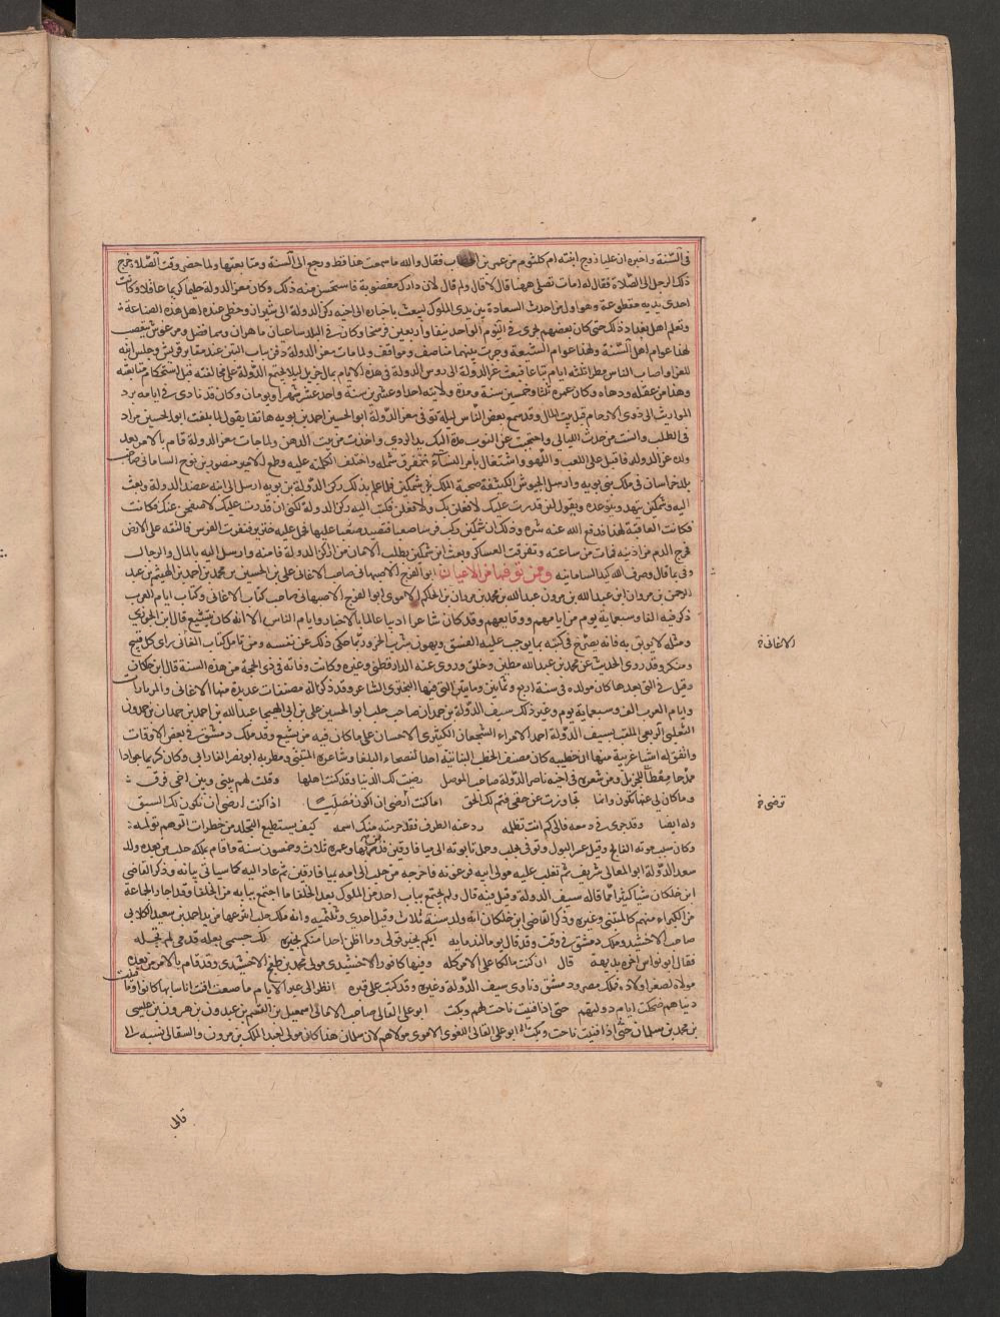 في السنة واخبره ان عليا زوج ابنته ام كلثوم من عمر بن الخطاب فقال والله ما سمعت هذا قط ورجع الى السنة ومتابعتها ولما حضر وقت الصلاة خرج
ذلك الرجل الى الصلاة فقال له امات تصلى ههنا قال لا قال ولم قال لان دارك مغصوبة فاستحسن منه ذلك وكان معز الدولة حليما كريما عاقلا وكانت
احدى يديه مقطوعة وهو اول من احدث السعاة بين يدى الملوك ليبعث باخباره الى اخيه ركن الدولة الى شيراز وحظى عنده اهل هذه الصناعة
وتعلم اهل بغداد ذلك حتى كان بعضهم يجرى في اليوم الواحد نيفا واربعين فرسخا وكان في البلد ساعيان ماهران وهما فضل ومرعوش يتعصب
لهذا عوام اهل السنة ولهذا عوام الشيعة وجرت بينهما مناصف ومواقف ولما مات معز الدولة دفن بباب التبن عند مقابر قريش وجلس ابنه
للعزا واصاب الناس مطر ثلثة ايام تباعا فبعث عز الدولة الى روس الدولة في هذه الايام بمال جزيل ليلا يجتمع الدولة على مخالفته قبل استحكام متابعته
وهذا من عقله ودهاه وكان عمره ثلثا وخمسين سنة ومدة ولايته احدا وعشرين سنة واحد عشر شهرا ويومان وكان قد نادى في ايامه برد
المواريث الى ذوى الارحام قبل بيت المال وقد سمع بعض الناس ليلة توفى معز الدولة ابو الحسين احمد بن بويه هاتفا يقول لما بلغت ابو الحسين مراد
في الطلب وامنت من حدث الليالى واحتجبت عن النوب مدت اليك يد الردى واخذت من بيت الذهب ولما مات معز الدولة قام بالامر بعد
ولده عز الدولة فاقبل على اللعب واللهو واشتغال بامر النساء فتفرق شمله واختلف الكلمة عليه وطمع الامير منصور بن نوح السامانى صاحب
بلاد خراسان في ملك بنى بويه وارسل الجيوش الكثيفة صحبة الملك وشمكير فلما علم بذلك ركن الدولة بن بويه ارسل الى ابنه عضد الدولة وبعث
اليه وشمكير يتهدد ويتوعده ويقول لئن قدرت عليك لافعلن بك ولافعلن فكتب اليه ركن الدولة لكنى ان قدرت عليك لاصفحن عنك فكانت
فكانت العاقبة لهذا فدفع الله عنه شره وذلك ان شمكير ركب فرسا صعبا فتصيد صعبا عليها فحمل عليه خنزير فنفرت الفرس فالقته على الارض
فخرج الدم من اذنيه فمات من ساعته وتفرقت العساكر وبعث ابن شمكير يطلب الامان من ركن الدولة فامنه وارسل اليه بالمال والرجال
وفى بما قال وصرف الله كيد السامانية وممن توفى فيها من الاعيان ابو الفرج الاصبهانى صاحب الاغانى على بن الحسين بن محمد بن احمد بن الهيثم بن عبد
الرحمن بن مروان ابن عبد الله بن مروان عبد الله بن محمد بن مروان بن الحكم الاموى ابو الفرج الاصبهانى صاحب كتاب الاغانى وكتاب ايام العرب
ذكر فيه الفا وسبعماية يوم من ايامهم ووقايعهم وقد كان شاعرا اديبا عالما بالاخبار وايام الناس الا انه كان يتشيع قال ابن الجوزى
ومثله لا يوثق به فانه يصرح في كتبه بما يوجب عليه الفسق ويهون شرب الخمر وربما حكى ذلك عن نفسه ومن تامل كتاب الغانى راى كل قبيح
ومنكر وقد روى الحديث عن محمد بن عبد الله مطين وخلق وروى عنه الدارقطنى وغيره وكانت وفاته في ذى الحجة من هذه السنة قال ابن خلكان
وقيل في التى بعدها كان مولده في سنة اربع وثمانين وماتين التى فيها البحترى الشاعر وقد ذكر له مصنفات عديدة منها الاغانى والمزارات
وايام العرب الف وسبعماية يوم وغير ذلك سيف الدولة بن حمدان صاحب حلب ابو الحسين على بن ابى الهيجا عبد الله بن احمد بن حمدان بن حمدون
التغلبى الربعى الملقب بسيف الدولة احد الامراء الشجعان الكثيرى الاحسان على ما كان فيه من تشيع وقد ملك دمشق في بعض الاوقات
واتفق له اشيا غريبة منها ان خطيبه كان مصنف الخطب النباتية احد الفصحاء البلغا وشاعره المتنبى ومطربه ابو نصر الفارابى وكان كريما جوادا
ممدحا معطا للجزيل ومن شعره في اخيه ناصر الدولة صاحب الموصل رضيت لك الدنيا وقد كنت اهلها وقلت لهم بينى وبين اخى فرق
وما كان لى عنها نكول وانما تجاوزت عن حقى فتم لك الحق اما كنت ارضى ان اكون مصليا اذا كنت ارضى ان تكون لك السبق
وله ايضا وقد جرى في دمعه فالى كم انت تظلمه رد عنه الطرف فقد جرحته منك اسهمه كيف يستطيع التجلد من خطرات الوهم تولمه
وكان سبب موته الفالج وقيل عسر البول وتوفى بحلب وحمل تابوته الى ميافارقين فدفن بها وعمره ثلاث وخمسون سنة واقام بملك حلب من بعده ولد
سعد الدولة ابو المعالى شريف ثم تغلب عليه مولى ابيه قرعويه فاخرجه من حلب الى امه بميافارقين ثم عاد اليه كما سياتى بيانه وذكر القاضى
ابن خلكان شيا كثيرا مما قاله سيف الدولة وقيل فيه قال ولم يجتمع بباب احد من الملوك بعد الخلفا ما اجتمع ببابه من الخلفا وقد اجاز الجماعة
من الكبراء منهم كالمتنبى وغيره وذكر القاضى ابن خلكان انه ولد سنة ثلاث وقيل احدى وثلثميه وانه ملك حلب انتزعها من يد احمد بن سعيد الكلابى
صاحب الاخشيد وملك دمشق في وقت وقد قال يوما لندمايه ايكم يجيز قولى وما اظن احدا منكم يجيزه لك جسمى يعله قدمى لم تحله
فقال ابو نواس اخوه بديعة قال ان كنت مالكا على الامر كله وفيها كافور الاخشيدى مولى محمد بن طغج الاخشيدى وقد قام بالامر من بعد
مولاه لصغر اولاده فملك مصر ودمشق وناوى سيف الدولة وغيره وقد كتب على قبره انظر الى عبر الايام ما صنعت افنت اناسا بها كانوا وما فنيت
دنياهم ضحكت ايام دولتهم حتى اذا فنيت ناحت لهم وبكت ابو على القالى صاحب الامالى اسمعيل بن القسم بن عبدون بن هرون بن عيسى
بن محمد بن سلمان حتى اذا فنيت ناحت وبكت ابو على القالى اللغوى الاموى مولاهم لان سلمان هذا كان مولى لعبد الملك بن مرون والسقالى نسبه الى
الاغانى
ترضى
قالى